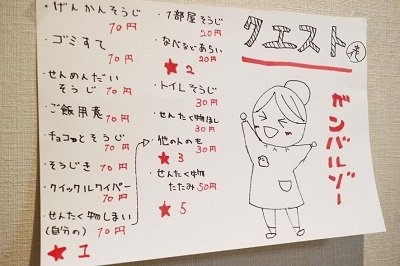 ・げんかんそうじ
10円
・ゴミすて
10円
・せんめんだい
そうじ 10円
・ご飯用意
10円
・チョコっとそうじ
10円
・そうじき 10円
・クイックルワイパー
10円
・せんたく物しまい
(自分の) 10円
★1
・1部屋そうじ
20円
・なべなどあらい
20円
★2
・トイレそうじ
30円
・せんたく物ほし
30円
・他の人のも
30円
★3
・せんたく物
たたみ 50円
★5
クエスト
ガンバルゾー